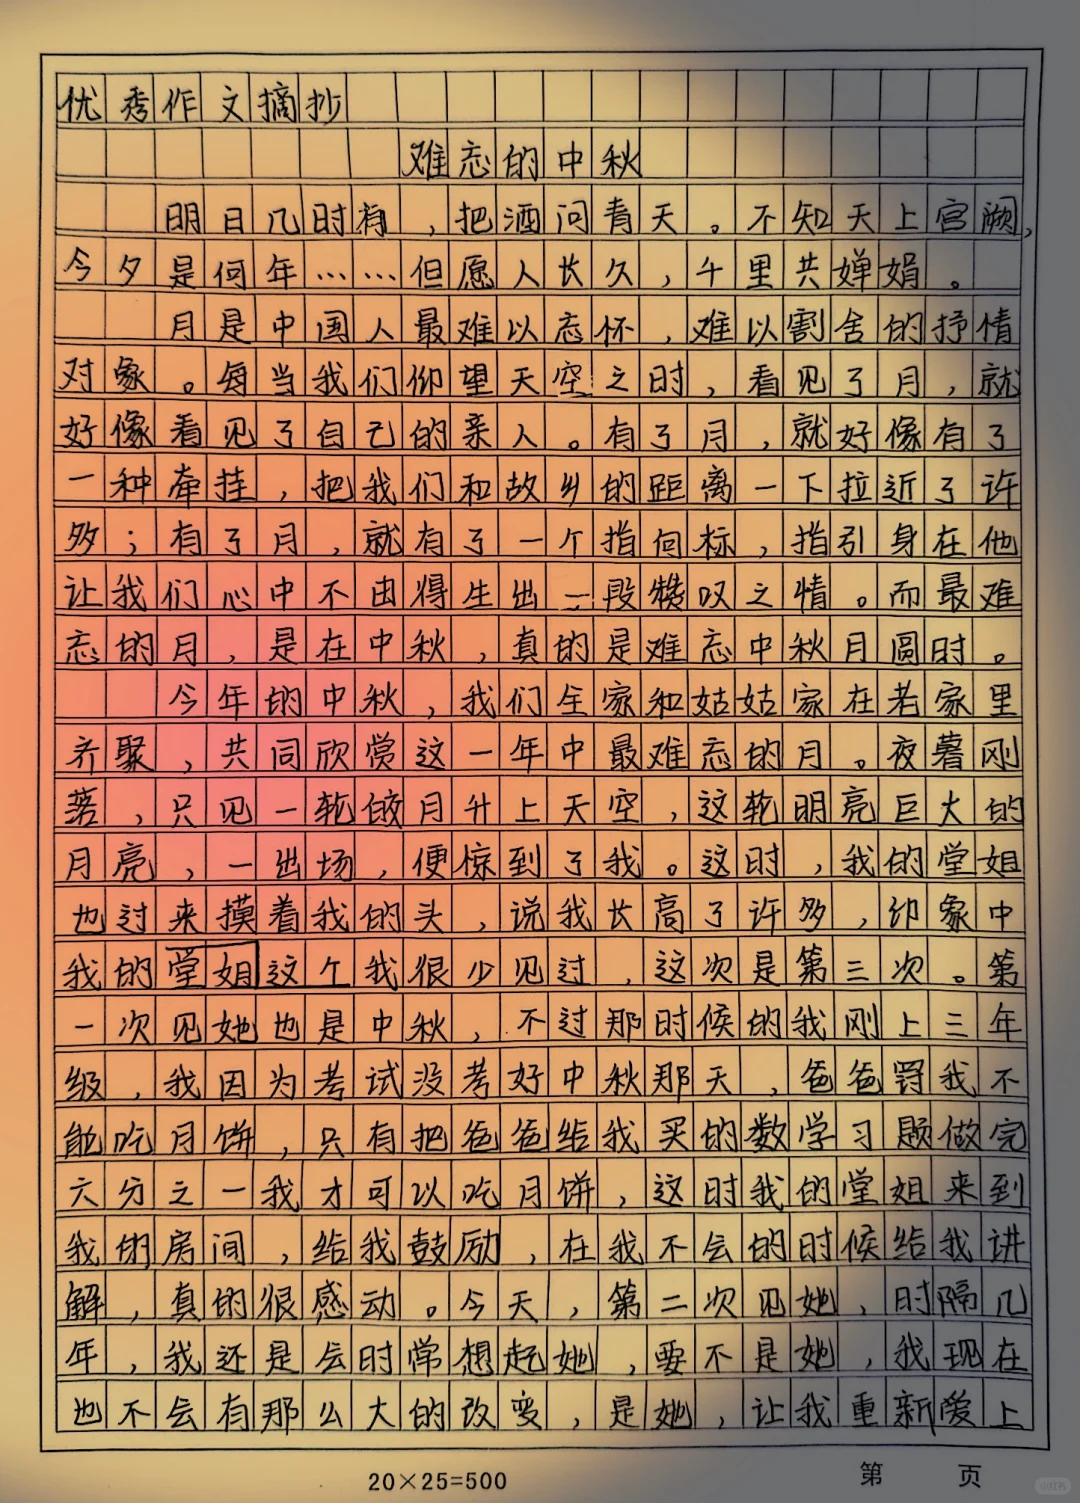 优秀作文摘抄
难忘的中秋
明日几时有，把酒问青天。不知天上宫阙，
今夕是何年……但愿人长久，千里共婵娟。
月是中国人最难以忘怀，难以割舍的抒情
对象。每当我们仰望天空之时，看见了月，就
好像看见了自己的亲人。有了月，就好像有了
一种牵挂，把我们和故乡的距离一下拉近了许
多；有了月，就有了一个指向标，指引身在他
让我们心中不由得生出一段赞叹之情。而最难
忘的月，是在中秋，真的是难忘中秋月圆时。
今年的中秋，我们全家和姑姑家在老家里
齐聚，共同欣赏这一年中最难忘的月。夜暮刚
落，只见一轮皎月升上天空，这轮明亮巨大的
月亮，一出场，便惊到了我。这时，我的堂姐
也过来摸着我的头，说我长高了许多，印象中
我的堂姐这个我很少见过，这次是第三次。第
一次见她也是中秋，不过那时候的我刚上三年
级，我因为考试没考好中秋那天，爸爸罚我不
能吃月饼，只有把爸爸给我买的数学习题做完
六分之一我才可以吃月饼，这时我的堂姐来到
我的房间，给我鼓励，在我不会的时候给我讲
解，真的很感动。今天，第二次见她，时隔几
年，我还是会时常想起她，要不是她，我现在
也不会有那么大的改变，是她，让我重新爱上
20×25=500
第 页
小红书